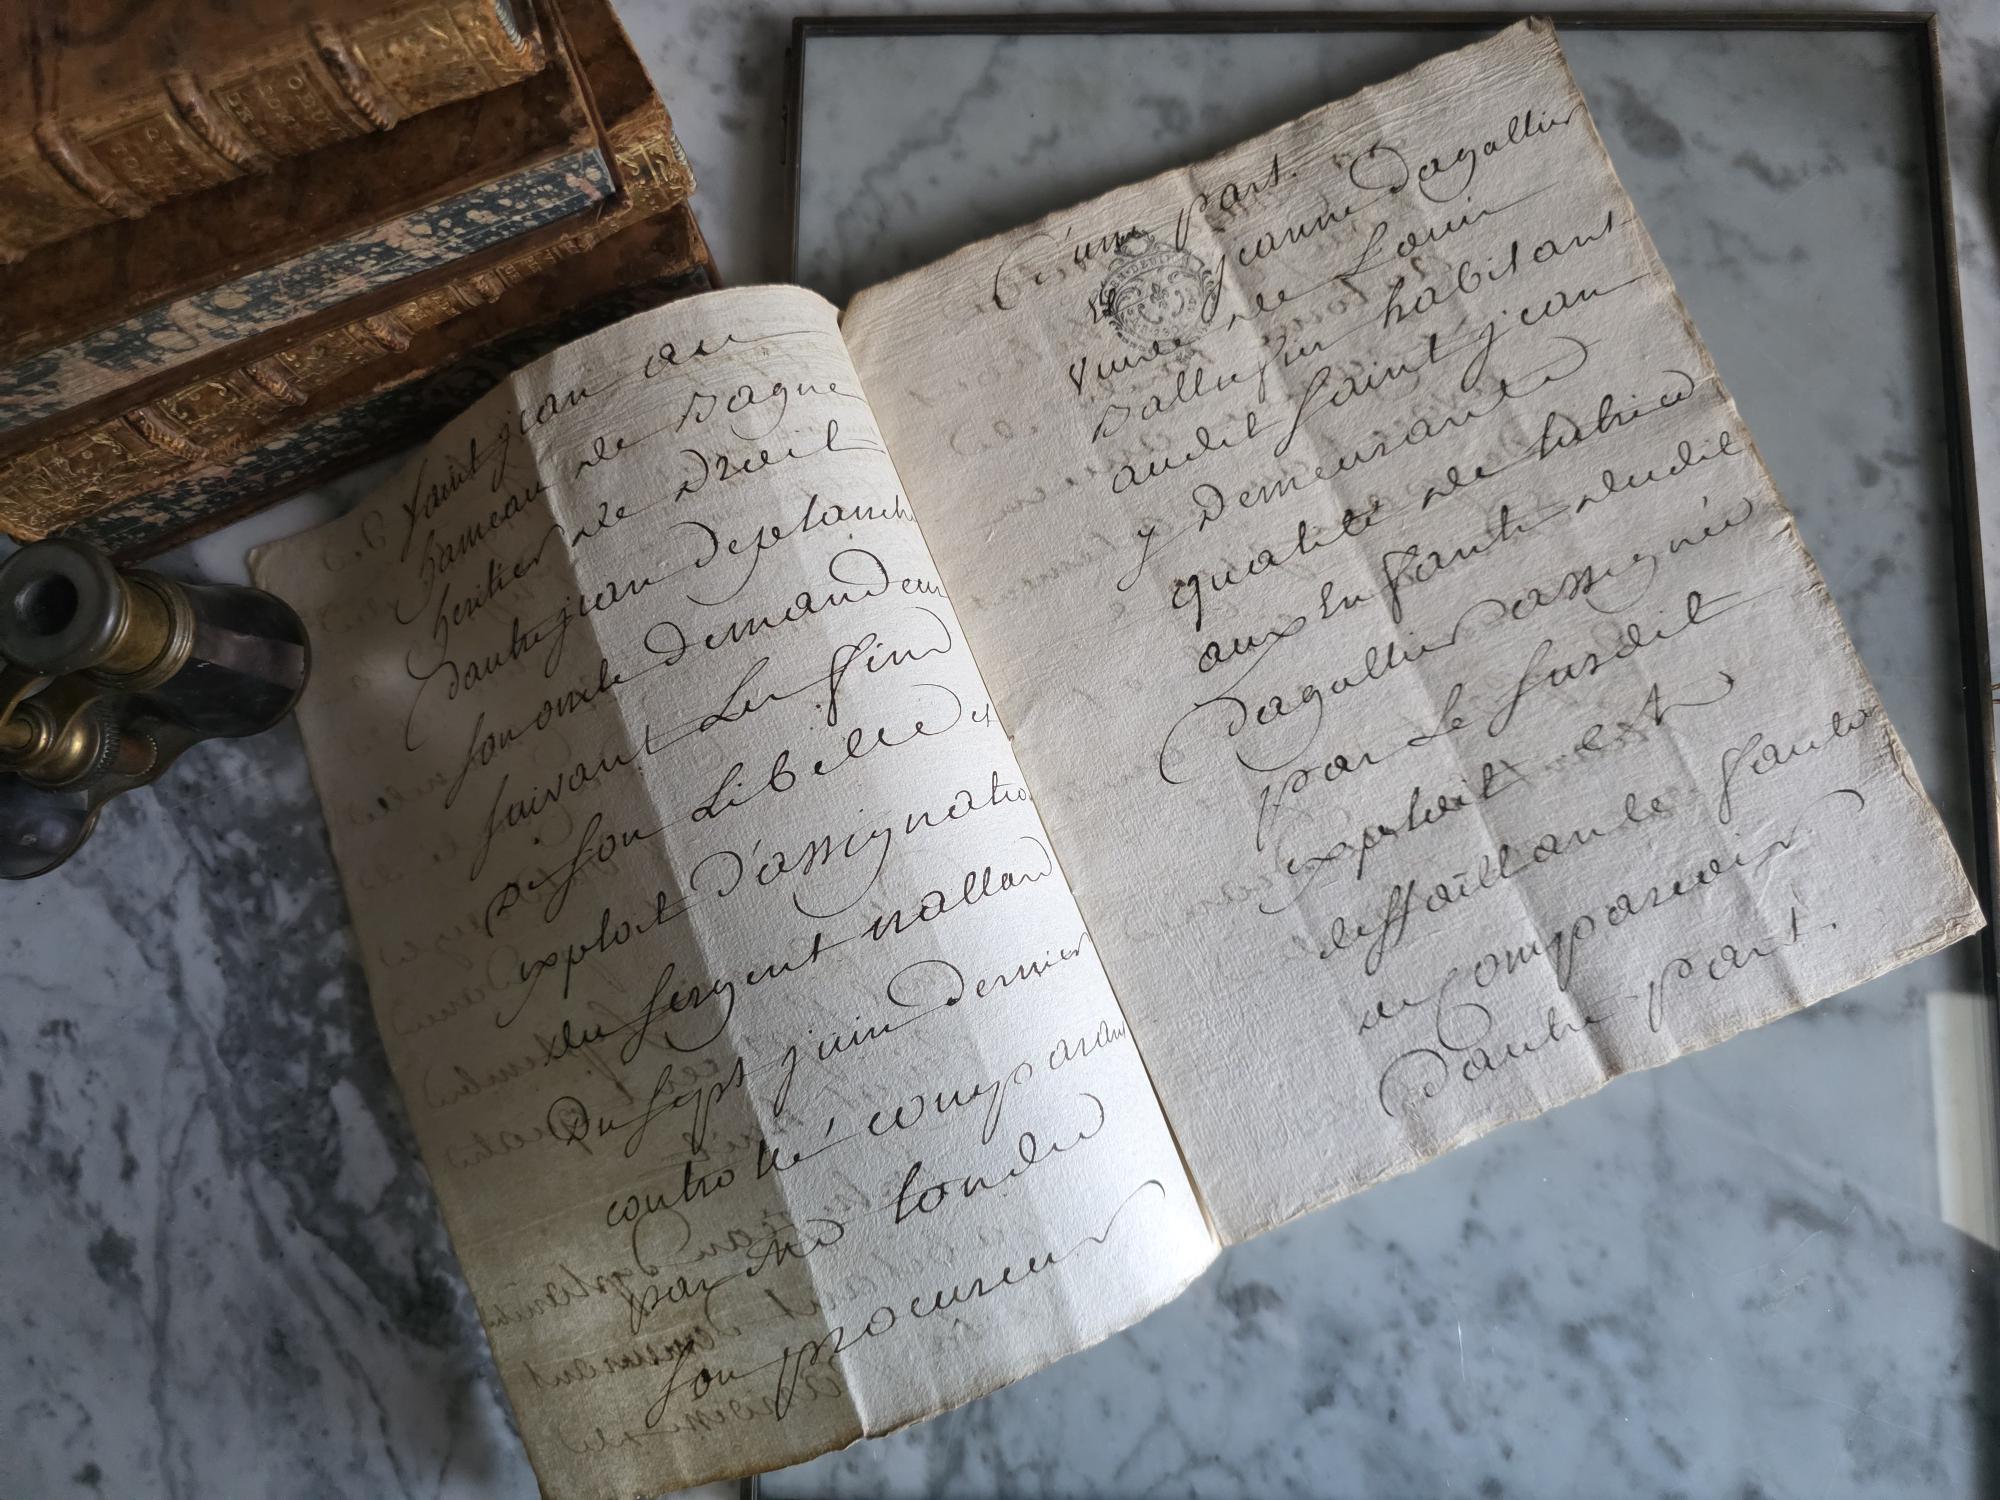 Saint jean au
hameau de Bagne
heritier de Droit
dautre jean Deplanche
son oncle Demandeur
suivant Les fins
De son Libellé et
exploit D'assignation
du sergent nallard
Du sept juin Dernier
controllé comparant
par Me londes
son procureur
D'une part.
Et jeanne Dagallier
veuve de Louis
habitant
audit Saint jean
y Demeurante
qualité de tutrice
aux Enfants dudit
Dagallier assignée
par Le susdit
exploit et
deffaillante faute
de Comparoir
Dautre part.